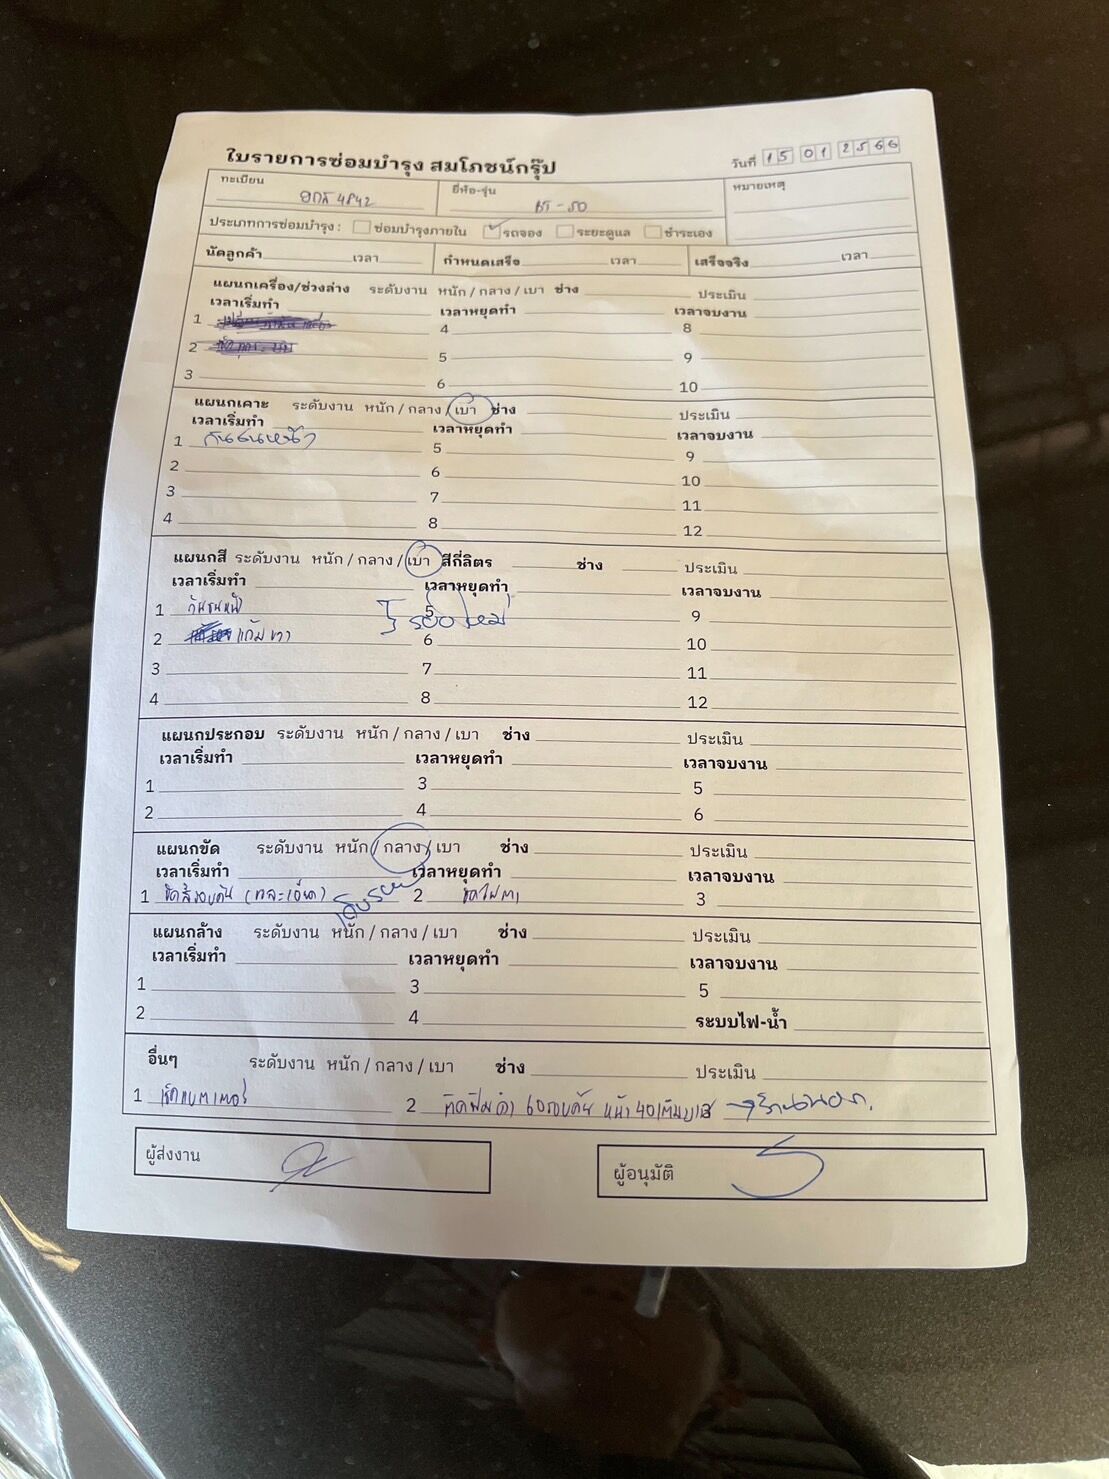 ใบรายการซ่อมบำรุง สมโภชน์กรุ๊ป
วันที่ 15 01 2566
ทะเบียน 4842
ยี่ห้อ-รุ่น BT-50
หมายเหตุ
ประเภทการซ่อมบำรุง : ซ่อมบำรุงภายใน รถจอง ระยะดูแล ชำระเอง
นัดลูกค้า เวลา กำหนดเสร็จ เวลา เสร็จจริง เวลา
แผนกเครื่อง/ช่วงล่าง ระดับงาน หนัก / กลาง / เบา ช่าง ประเมิน
เวลาเริ่มทำ เวลาหยุดทำ เวลาจบงาน
1 4 8
2 5 9
3 6 10
แผนกเคาะ ระดับงาน หนัก / กลาง / เบา ช่าง ประเมิน
เวลาเริ่มทำ เวลาหยุดทำ เวลาจบงาน
1 กันชนหน้า 5 9
2 6 10
3 7 11
4 8 12
แผนกสี ระดับงาน หนัก / กลาง / เบา สีกี่ลิตร ช่าง ประเมิน
เวลาเริ่มทำ เวลาหยุดทำ เวลาจบงาน
1 กันชนหน้า 5 9
2 แก้มขวา 6 10
3 7 11
4 8 12
แผนกประกอบ ระดับงาน หนัก / กลาง / เบา ช่าง ประเมิน
เวลาเริ่มทำ เวลาหยุดทำ เวลาจบงาน
1 3 5
2 4 6
แผนกขัด ระดับงาน หนัก / กลาง / เบา ช่าง ประเมิน
เวลาเริ่มทำ เวลาหยุดทำ เวลาจบงาน
1 ขัดสีรอบคัน 2 ขัดไฟตา 3
แผนกล้าง ระดับงาน หนัก / กลาง / เบา ช่าง ประเมิน
เวลาเริ่มทำ เวลาหยุดทำ เวลาจบงาน
1 3 5
2 4 ระบบไฟ-น้ำ
อื่นๆ ระดับงาน หนัก / กลาง / เบา ช่าง ประเมิน
1 เช็คแบตเตอรี่ 2 ติดฟิมดำ 60รอบคัน หน้า 40เต็มบาน
ผู้ส่งงาน
ผู้อนุมัติ